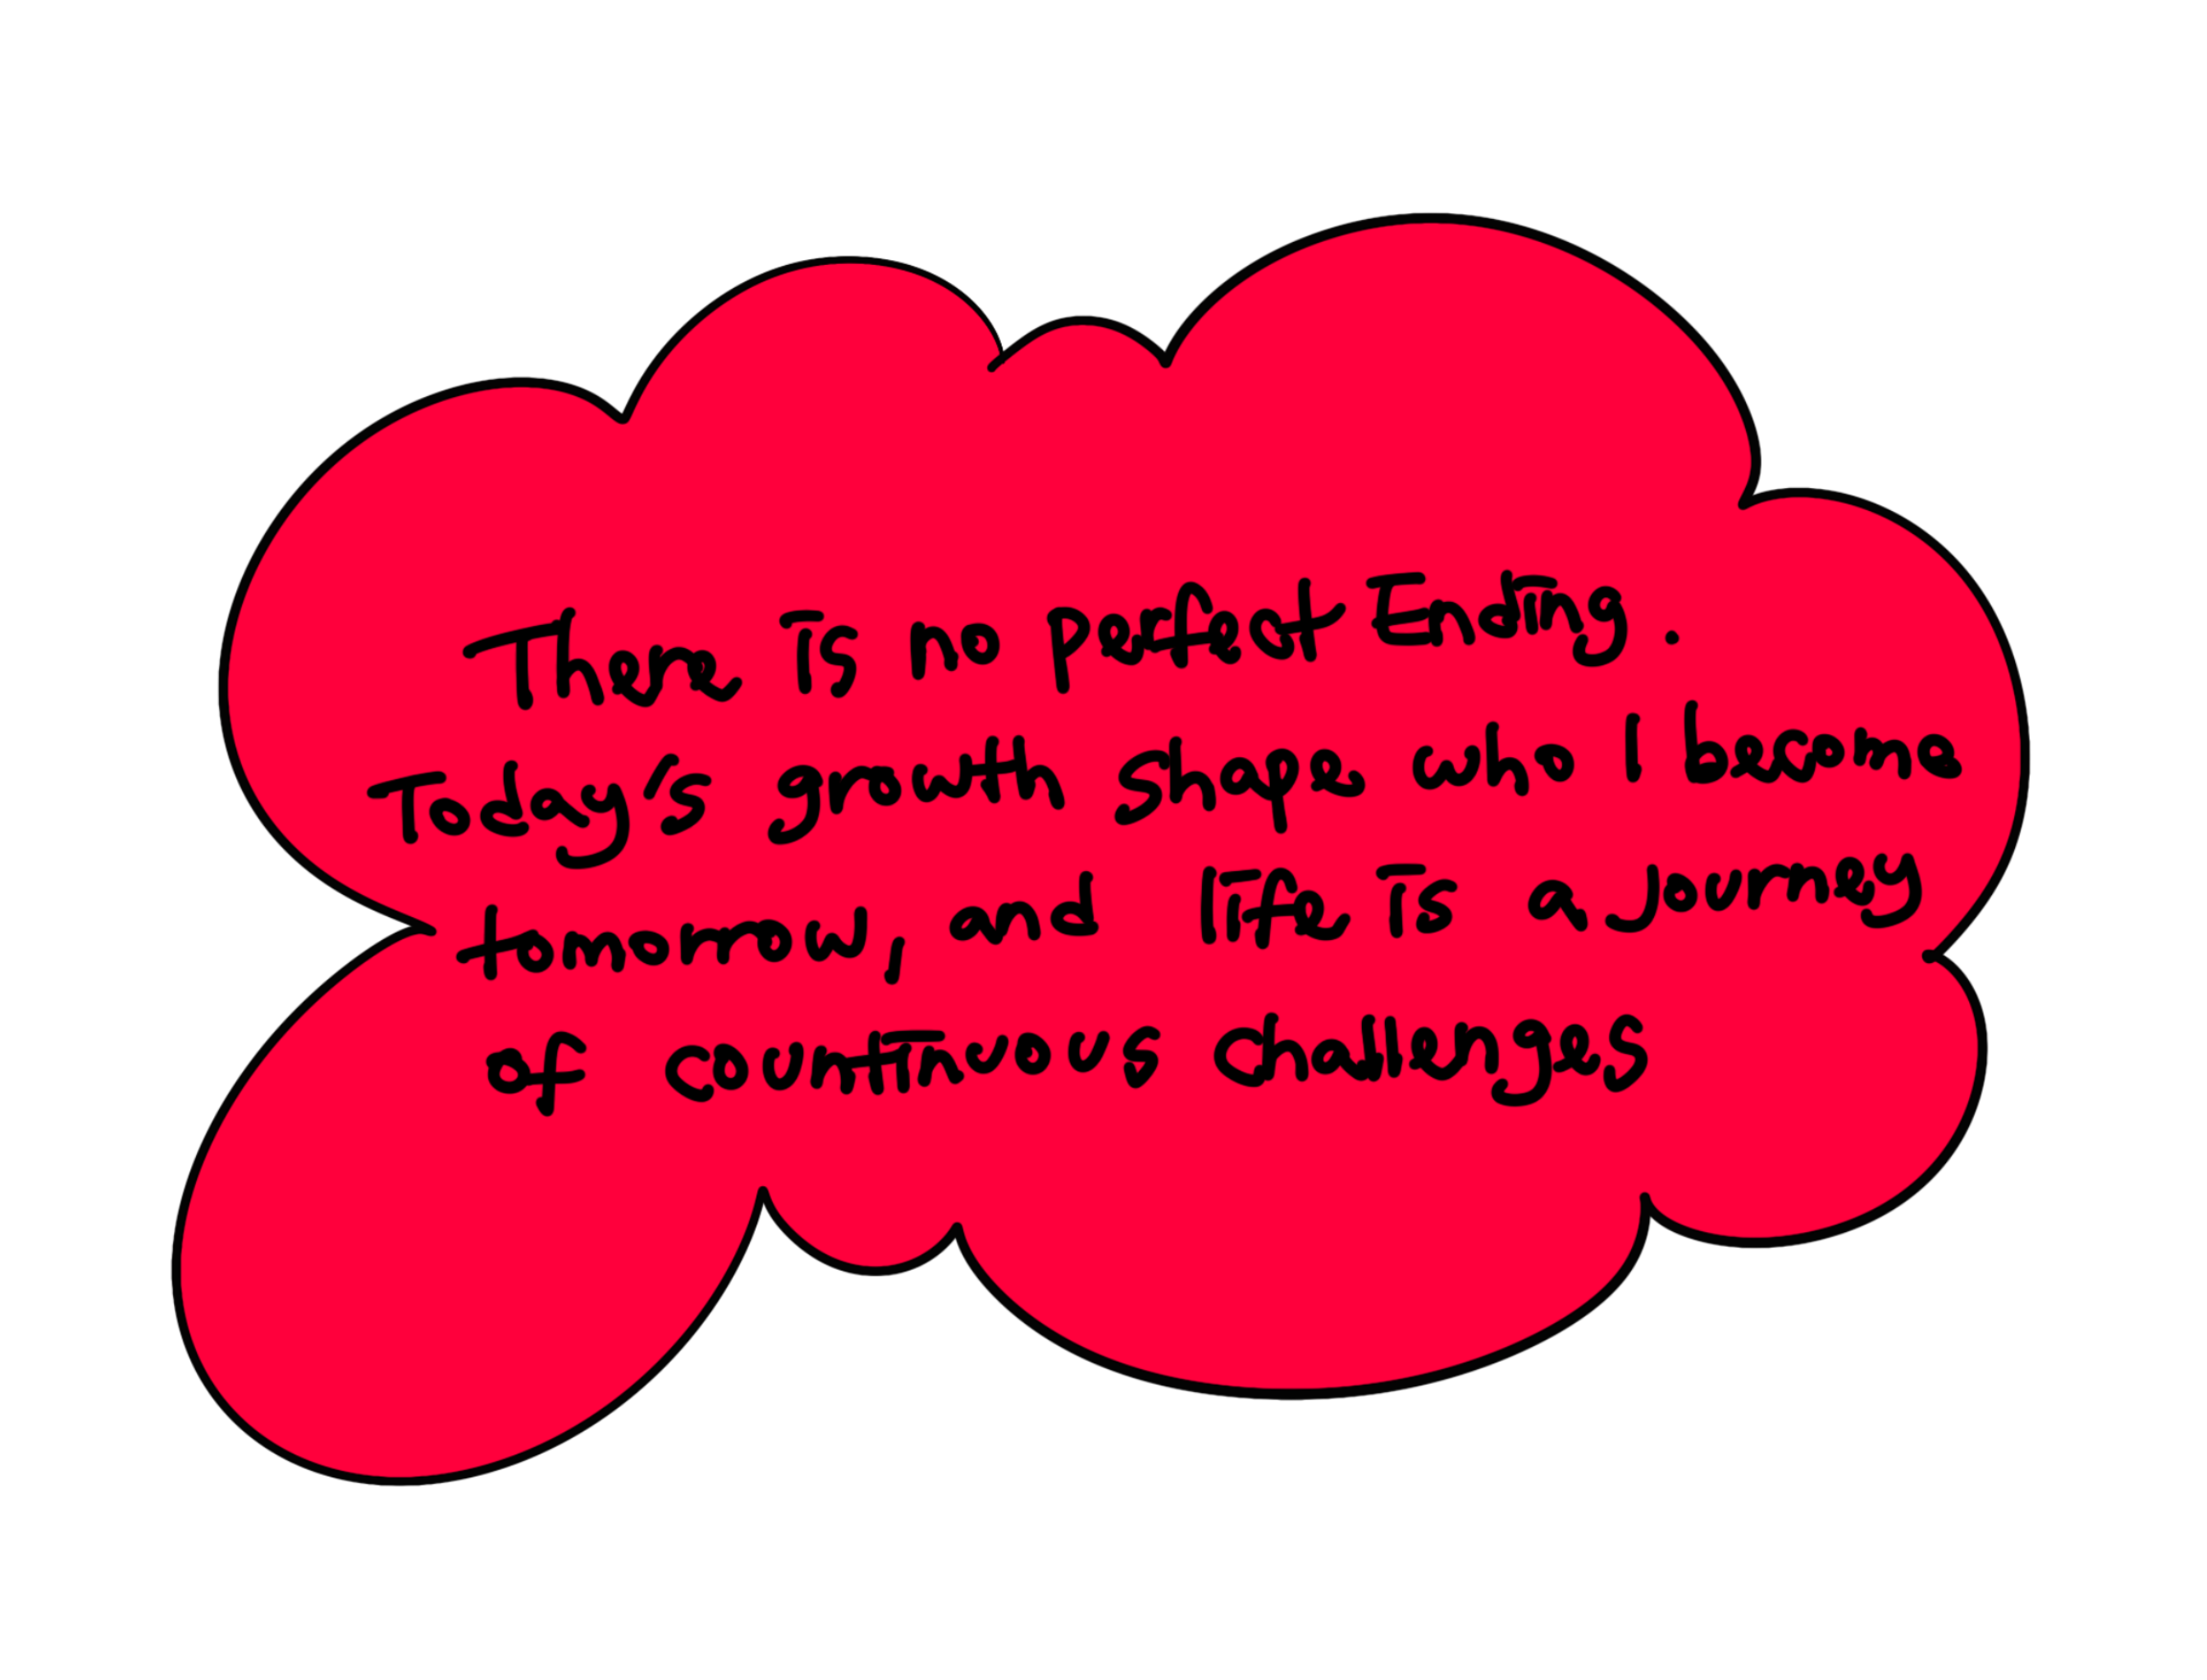 There is no perfect Ending.
Today's growth shape who I become
tomorrow, and life is a Journey
of countinuous challenges